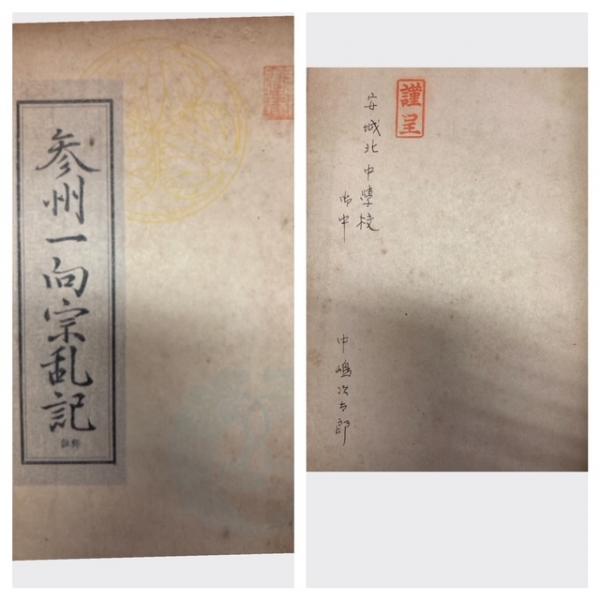 参州一向宗乱記
註釈
謹呈
安城北中學校
御中
中嶋次太郎